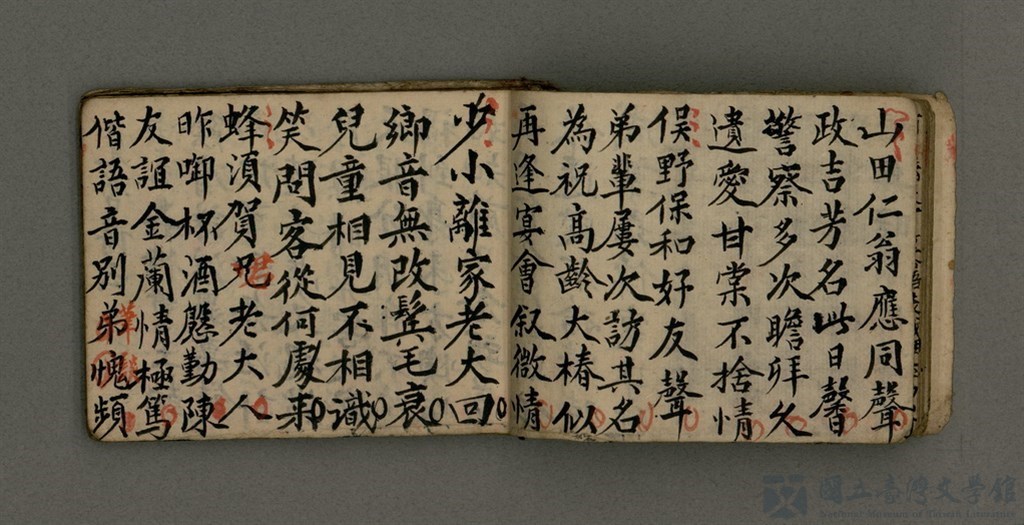 山田仁翁應同聲
政吉芳名此日馨
警察多次瞻拜久
遺愛甘棠不捨情
俣野保和好友聲
弟輩屢次訪其名
為祝高齡大椿似
再逢宴會叙微情
少小離家老大回
鄉音無改鬂毛衰
兒童相見不相識
笑問客從何處来
蜂須賀兄老大人
君
昨啣杯酒慇勤陳
友誼金蘭情極篤
偕語音別弟愧頻
國立臺灣文學館
National Museum of Taiwan Literature